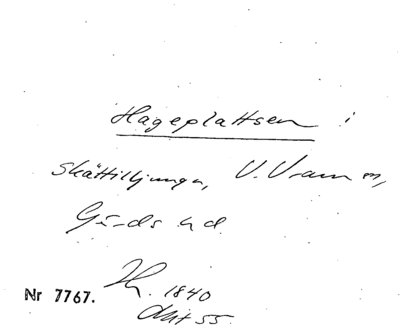 Hageplattsen i
Skättilljunga, V. Vram m,
Gärds hd.
1840
Nr 7767.
55.